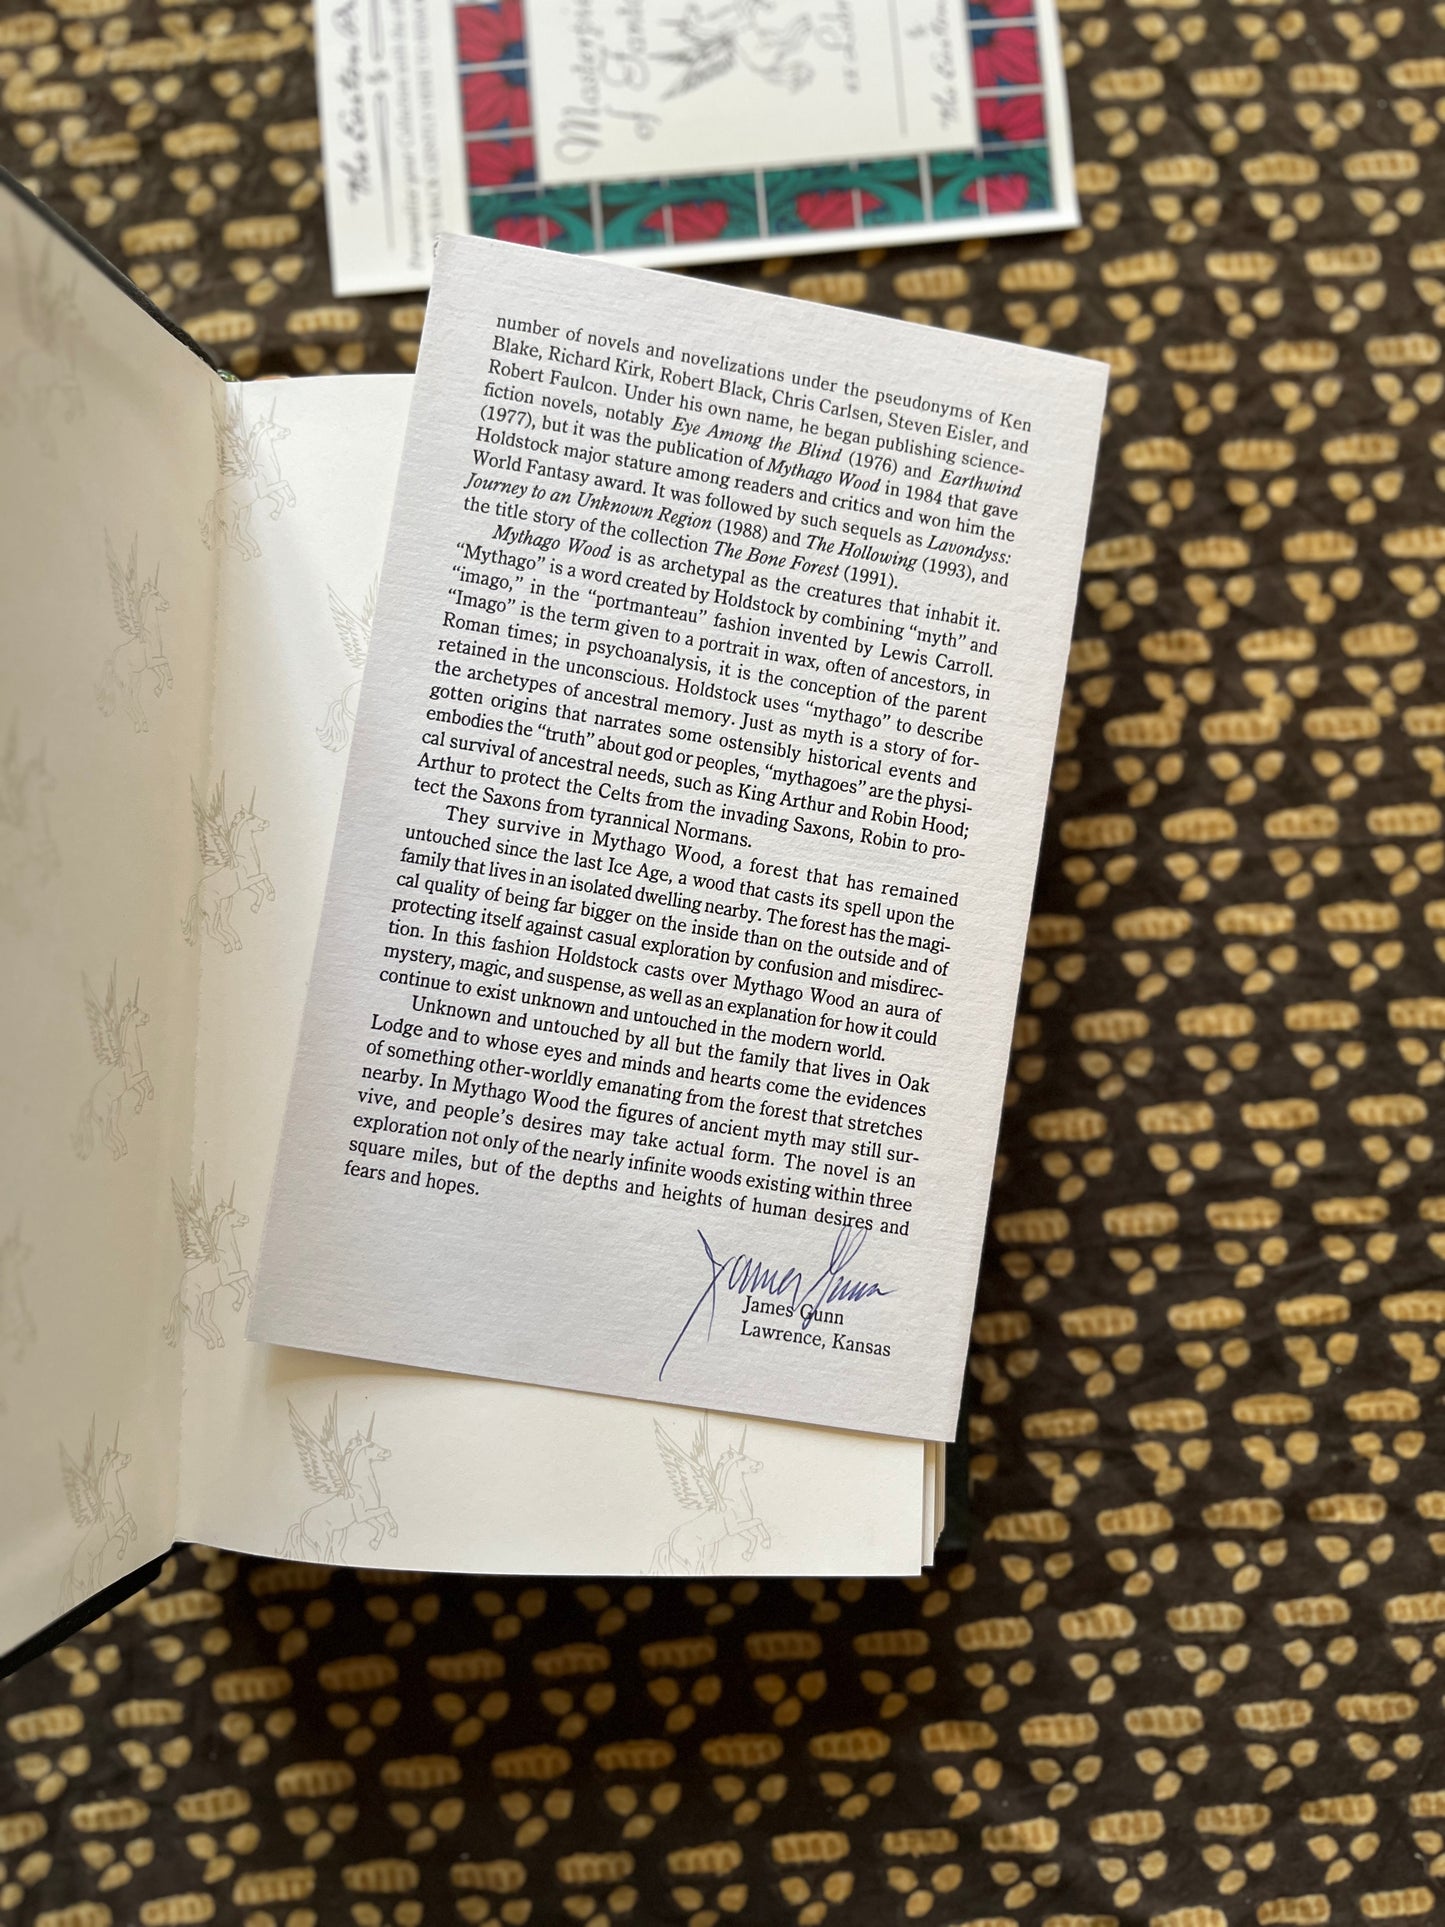 The Easton
Masterpie
of Fanta
The Easton
number of novels and novelizations under the pseudonyms of Ken
Blake, Richard Kirk, Robert Black, Chris Carlsen, Steven Eisler, and
Robert Faulcon. Under his own name, he began publishing science-
fiction novels, notably Eye Among the Blind (1976) and Earthwind
(1977), but it was the publication of Mythago Wood in 1984 that gave
Holdstock major stature among readers and critics and won him the
World Fantasy award. It was followed by such sequels as Lavondyss:
Journey to an Unknown Region (1988) and The Hollowing (1993), and
the title story of the collection The Bone Forest (1991).
Mythago Wood is as archetypal as the creatures that inhabit it.
“Mythago” is a word created by Holdstock by combining “myth” and
“imago,” in the “portmanteau” fashion invented by Lewis Carroll.
“Imago” is the term given to a portrait in wax, often of ancestors, in
Roman times; in psychoanalysis, it is the conception of the parent
retained in the unconscious. Holdstock uses “mythago” to describe
the archetypes of ancestral memory. Just as myth is a story of for-
gotten origins that narrates some ostensibly historical events and
embodies the “truth” about god or peoples, “mythagoes” are the physi-
cal survival of ancestral needs, such as King Arthur and Robin Hood;
Arthur to protect the Celts from the invading Saxons, Robin to pro-
tect the Saxons from tyrannical Normans.
They survive in Mythago Wood, a forest that has remained
untouched since the last Ice Age, a wood that casts its spell upon the
family that lives in an isolated dwelling nearby. The forest has the magi-
cal quality of being far bigger on the inside than on the outside and of
protecting itself against casual exploration by confusion and misdirec-
tion. In this fashion Holdstock casts over Mythago Wood an aura of
mystery, magic, and suspense, as well as an explanation for how it could
continue to exist unknown and untouched in the modern world.
Unknown and untouched by all but the family that lives in Oak
Lodge and to whose eyes and minds and hearts come the evidences
of something other-worldly emanating from the forest that stretches
nearby. In Mythago Wood the figures of ancient myth may still sur-
vive, and people’s desires may take actual form. The novel is an
exploration not only of the nearly infinite woods existing within three
square miles, but of the depths and heights of human desires and
fears and hopes.
James Gunn
James Gunn
Lawrence, Kansas